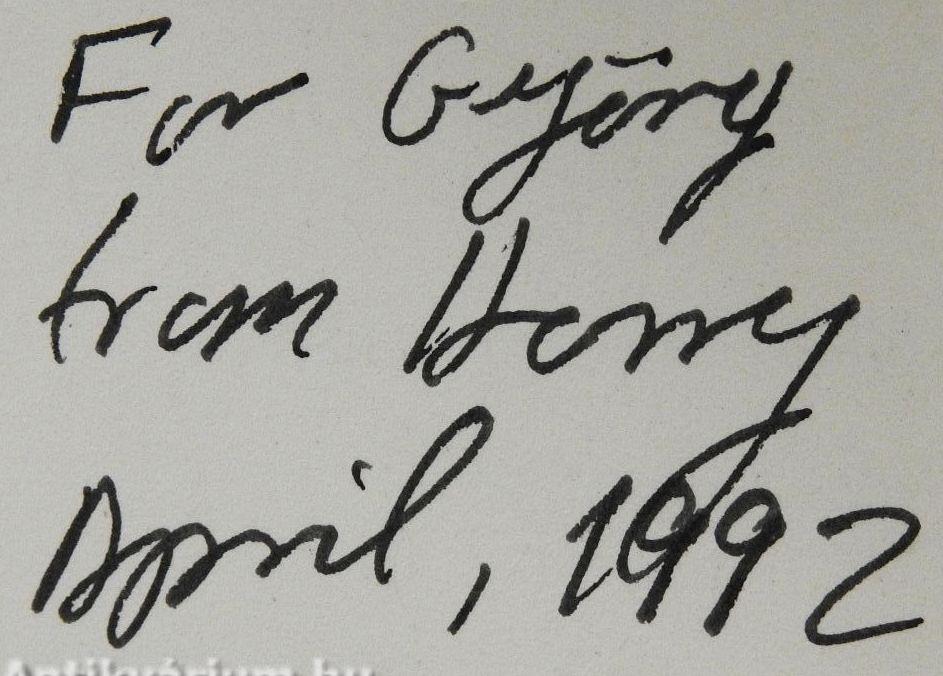 For Györg
from Harry
April, 1992
Antikvárium.hu